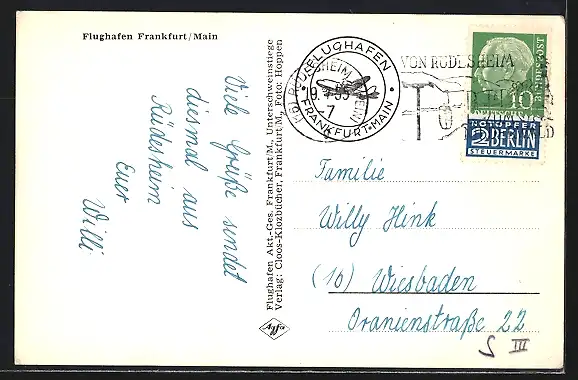 Flughafen Frankfurt/Main
Viele Grüße sendet
diesmal aus
Rüdesheim
Euer
Willi
Flughafen Akt.-Ges. Frankfurt/M., Unterschweinstiege
Verlag: Cloos-Klozbücher, Frankfurt/M., Foto: Hoppen
Agfa
FLUGHAFEN
FRANKFURT-MAIN
VON RÜDESHEIM
DEUTSCHE BUNDESPOST
10
NOTOPFER
2 BERLIN
STEUERMARKE
Familie
Willy Hink
(16) Wiesbaden
Oranienstraße 22
S III